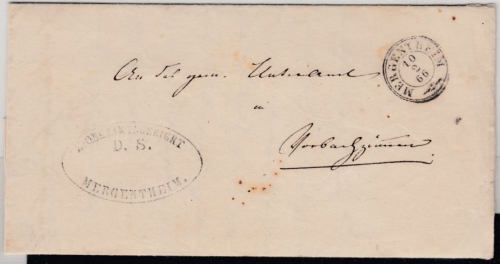 MERGENTHEIM
10
66
An das gem. Unteramt
in
Vorbachzimmern
K. OBERAMTSGERICHT
D. S.
MERGENTHEIM.